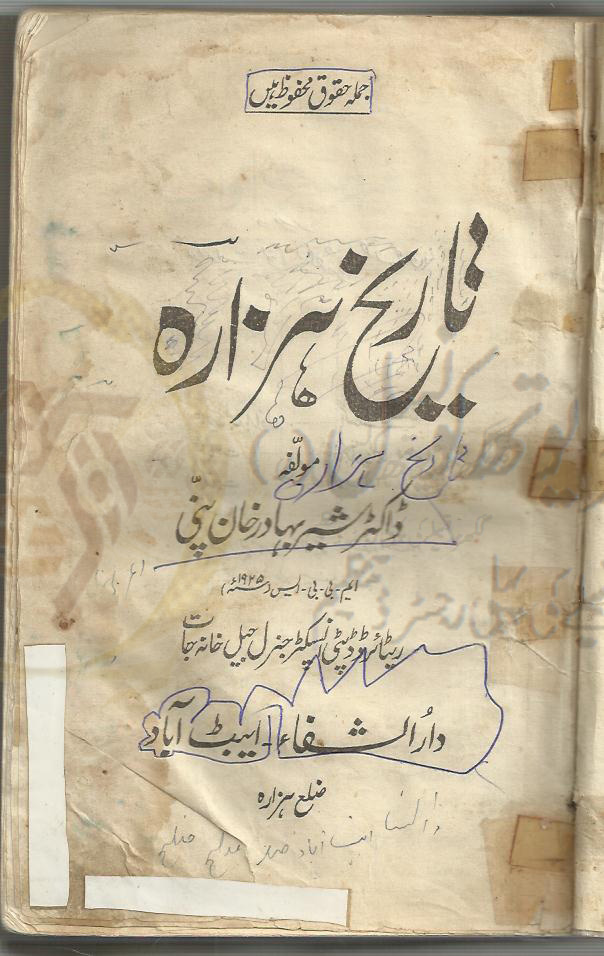 جملہ حقوق محفوظ ہیں
تاریخ ہزارہ
تاریخ ہزارہ
مولّفہ
ڈاکٹر شیر بہادر خان پنّی
ایم-بی-بی-ایس (۱۹۲۵ء)
ریٹائرڈ ڈپٹی انسپکٹر جنرل جیل خانہ جات
دارُالشفاء ایبٹ آباد
ضلع ہزارہ